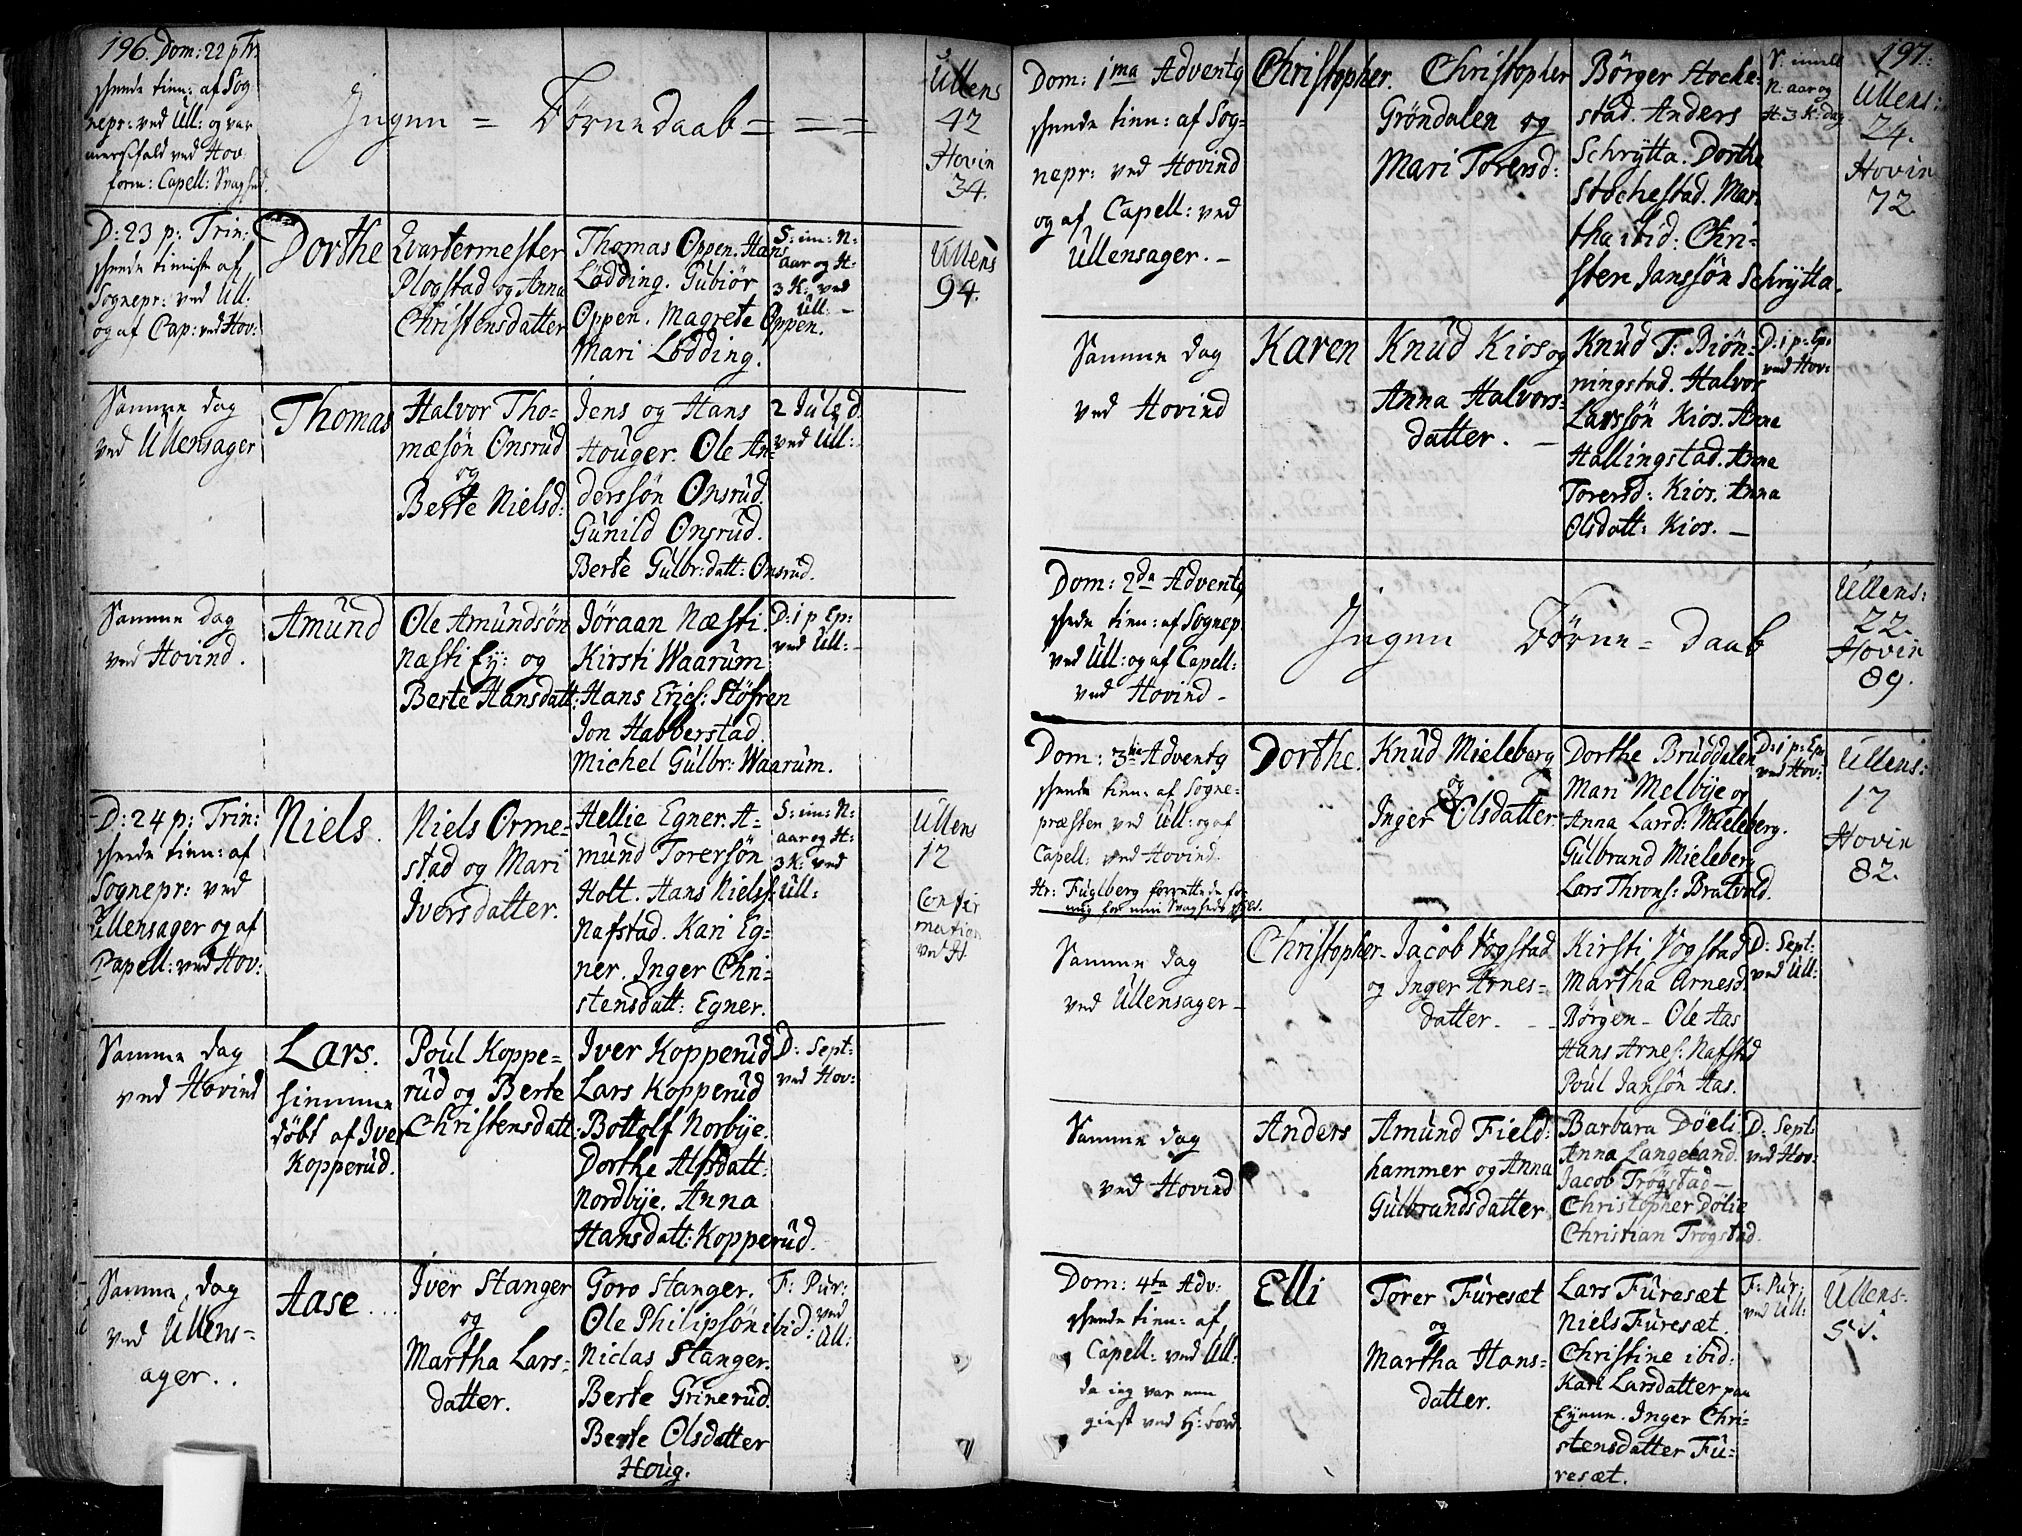 196. Dom: 22 p Tr:
skeede tien: af Sog
nepr: ved Ull: og var
messefald ved Hov
form: Capell: Svaghed.
Ingen = Börnedaab = = =
Ullens
42
Hovin
34.
D: 23 p: Trin:
skeede tieniste af
Sognepr: ved Ull:
og af Cap: ved Hov:
Dorthe
Qvartermester
Plogstad og Anna
Christensdatter
Thomas Oppen. Hans
Lödding. Gubiör
Oppen. Magrete Oppen.
Mari Lodding.
S: im: N:
aar og H:
3 K: ved
Ull: –
Ullens
94.
Samme dag
ved Ullensager
Thomas
Halvor Tho=
mæsön Onsrud
og
Berte Nielsd:
Jens og Hans
Houger. Ole An=
derssön Onsrud.
Gunild Onsrud.
Berte Gulbr: datt: Onsrud.
2 Juled.
ved Ull:
Samme dag
ved Hovind.
Amund
Ole Amundsön
nasti Ey: og
Berte Hansdatt:
Jöraan Næsti.
Kirsti Waarum
Hans Erics: Stöfren
Jon Habberstad.
Michel Gulbr: Waarum.
D: 1 p Ep:
ved Ull: –
D: 24 p: Trin:
skeede tien: af
Sognepr: ved
Ullensager og af
Capell: ved Hov:
Niels.
Niels Orme=
stad og Mari
Iversdatter.
Hellie Egner. A=
mund Torersön
Holt. Hans Niels:
Nafstad. Kari Eg=
ner. Inger Chri=
stensdatt: Egner.
S: im: N:
aar og H:
3 K: ved
Ull:
Ullens
12
Confir
mation
ved H.
Samme dag
ved Hovind
Lars.
hiemme
döbt af Iver
Kopperud.
Poul Koppe=
rud og Berte
Christensdatt:
Iver Kopperud
Lars Kopperud
Bottolf Norbÿe.
Dorthe Alfsdatt:
Nordbÿe. Anna
Hansdatt: Kopperud.
D: Sept:
ved Hov:
Samme dag
ved Ullens=
ager..
Aase...
Iver Stanger
og
Martha Lars=
datter.
Goro Stanger.
Ole Philipsön ibid:
Niclas Stanger.
Berte Grinerud.
Berte Olsdatter
Houg.
F: Pur:
ved
Ull:
197.
Dom: 1ma Advents
skeede tien: af Sog=
nepr: ved Hovind
og af Capell: ved
Ullensager. –
Christopher.
Christopher
Gröndalen og
Mari Torersd:
Börger Stocke=
stad. Anders
Schrÿtta. Dorthe
Stochestad. Mar=
tha ibid: Chri=
sten Janssön Schrÿtta.
S: imell
N: aar og
H: 3 K: dag
Ullens:
24.
Hovin
72.
Samme dag
ved Hovind
Karen
Knud Kios og
Anna Halvors=
datter. –
Knud T: Biön=
ningstad. Halvor
Larssön Kios. Anna
Hallingstad. Anne
Torersd: Kios. Anna
Olsdatt: Kios. –
D: 1 p: Ep:
ved Hov:
Dom: 2da Advents
skede tien: af Sognep
ved Ull: og af Capell:
ved Hovind –
Ingen Börne = daab
Ullens:
22.
Hovin
89.
Dom: 3tia Advents
skeede tien: af Sogne=
præsten ved Ull: og af
Capell: ved Hovind.
Hr: Fuglberg forrettede for
mig for min Svagheds skyld.
Dorthe.
Knud Mieleberg
og
Inger Olsdatter
Dorthe Bruddalen
Mari Melbÿe og
Anna Larsd: Mieleberg.
Gulbrand Mieleberg
Lars Throns: Bratvold.
D: 1 p: Ep:
ved Hov:
Ullens:
17
Hovin
82.
Samme dag
ved Ullensager –
Christopher –
Jacob Vogstad
og Inger Arnes=
datter. –
Kirsti Vogstad
Martha Arnesd:
Börgen – Ole Aas
Hans Arnes: Nafstad
Poul Jansön Aas.
D: Sept:
ved Ull:
Samme dag
ved Hovind
Anders
Amund Field:
hammer og Anna
Gulbrandsdatter
Barbara Döeli
Anna Langeland.
Jacob Trögstad –
Christopher Dölie
Christian Trögstad.
D: Sept:
ved Hov:
Dom: 4ta Adv:
skeede tien: af
Capell: ved Ull:
da jeg var en
giest ved H: bord.
Elli
Torer Furesæt
og
Martha Hans=
datter.
Lars Furesæt
Niels Furesæt.
Christine ibid:
Kari Larsdatter paa
Eÿene. Inger Chri=
stensdatter Fu=
resæt.
F: Pur:
ved Ull:
Ullens:
51.